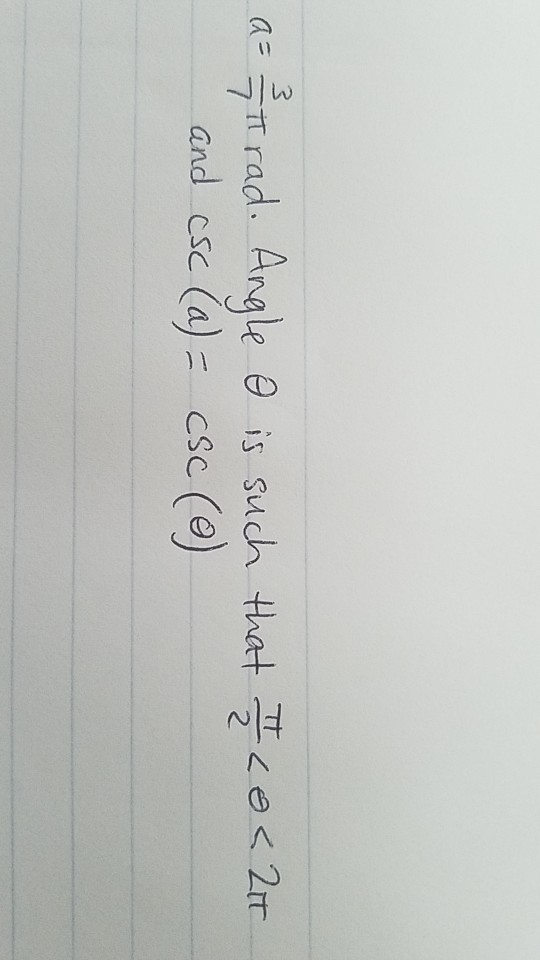 a = 3/7 π rad. Angle θ is such that π/2 < θ < 2π
and csc (a) = csc (θ)